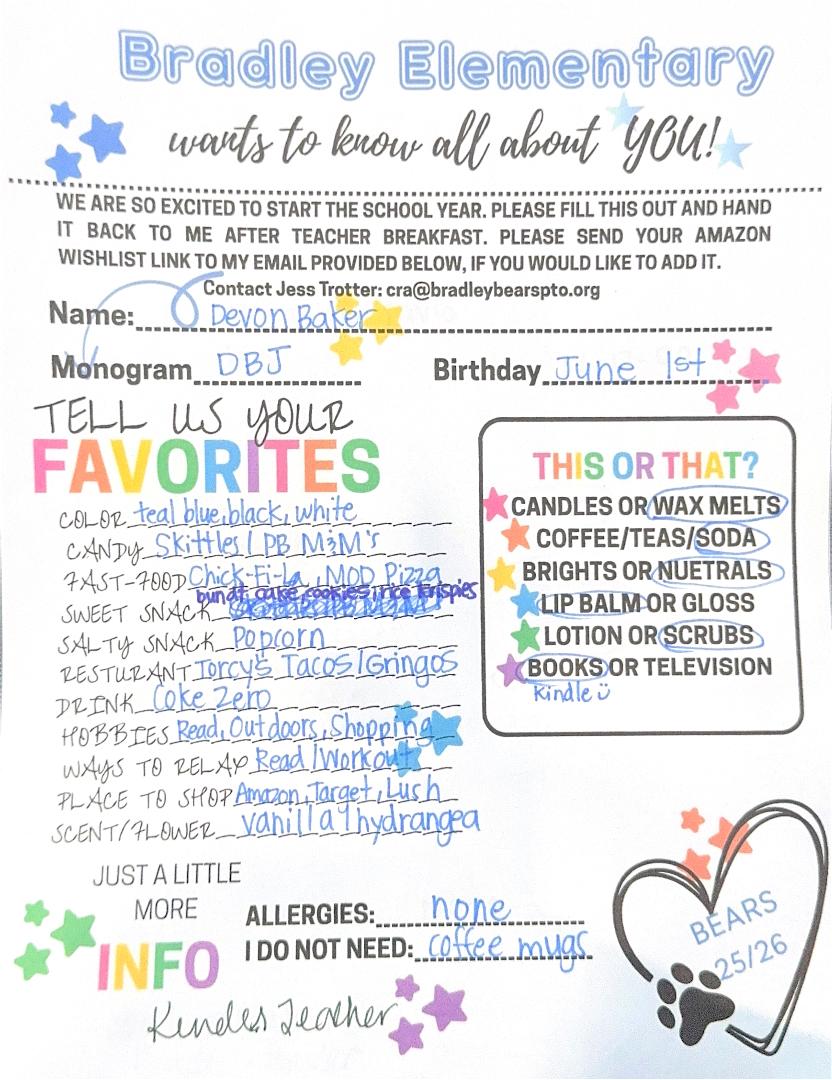 Bradley Elementary
wants to know all about YOU!
WE ARE SO EXCITED TO START THE SCHOOL YEAR. PLEASE FILL THIS OUT AND HAND
IT BACK TO ME AFTER TEACHER BREAKFAST. PLEASE SEND YOUR AMAZON
WISHLIST LINK TO MY EMAIL PROVIDED BELOW, IF YOU WOULD LIKE TO ADD IT.
Contact Jess Trotter: cra@bradleybearspto.org
Name: Devon Baker
Monogram DBJ Birthday June 1st
TELL US YOUR
FAVORITES
COLOR teal blue, black, white
CANDY Skittles / PB M&M's
FAST-FOOD Chick-Fi-La, MOD Pizza
bundt cake, cookies, rice krispies
SWEET SNACK
SALTY SNACK Popcorn
RESTURANT Torcy's Tacos/Gringos
DRINK Coke Zero
HOBBIES Read, Outdoors, Shopping
WAYS TO RELAX Read/Workout
PLACE TO SHOP Amazon, Target, Lush
SCENT/FLOWER vanilla / hydrangea
THIS OR THAT?
CANDLES OR WAX MELTS
COFFEE/TEAS/SODA
BRIGHTS OR NUETRALS
LIP BALM OR GLOSS
LOTION OR SCRUBS
BOOKS OR TELEVISION
Kindle
JUST A LITTLE
MORE
INFO
ALLERGIES: none
I DO NOT NEED: coffee mugs
Teacher
BEARS
25/26